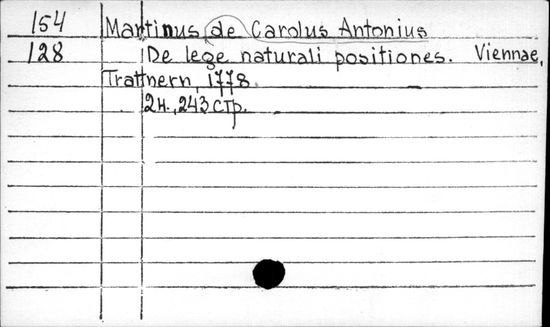 154 Martinus de Carolus Antonius
128 De lege naturali positiones. Viennae,
Trattnern, 1778.
2н., 243 стр.